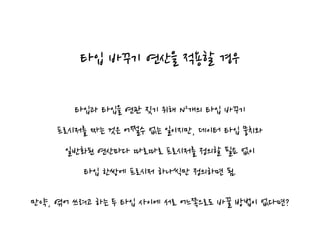 타입 바꾸기 연산을 적용할 경우
타입과 타입을 연관 짓기 위해 N²개의 타입 바꾸기
프로시저를 짜는 것은 어쩔수 없는 일이지만, 데이터 타입 뭉치와
일반화된 연산마다 따로따로 프로시저를 정의할 필요 없이
타입 한쌍에 프로시저 하나씩만 정의하면 됨.
만약, 엮어 쓰려고 하는 두 타입 사이에 서로 어느쪽으로도 바꿀 방법이 없다면?